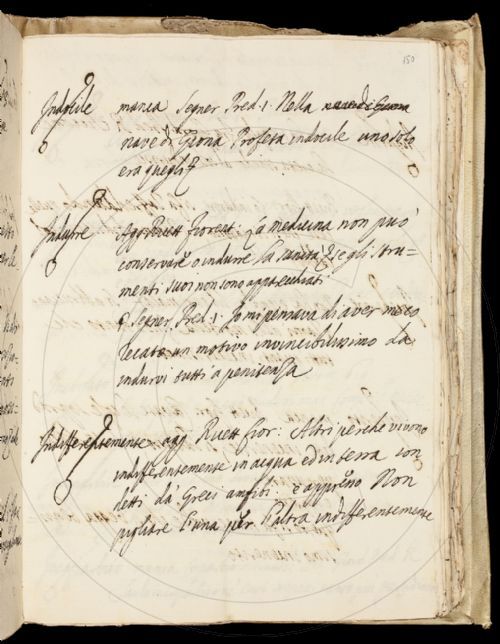 150
Indocile manca Segner. Pred. 1. Nella nave di Giona
nave di Giona Profeta indocile uno solo
era quegli
Indurre Agg. Ricett. Fiorent. La medicina non può
conservare o indurre la sanità, se gli stru=
menti suoi non sono apparecchiati
Segner. Pred. 1. Io mi pensava di aver meco
recato un motivo invincibilissimo da
indurvi tutti a penitenza
Indifferentemente agg. Ricett. Fior: Altri perché vivono
indifferentemente in acqua ed in terra son
detti da' Greci anfibi. e appresso Non
pigliare l'una per l'altra indifferentemente